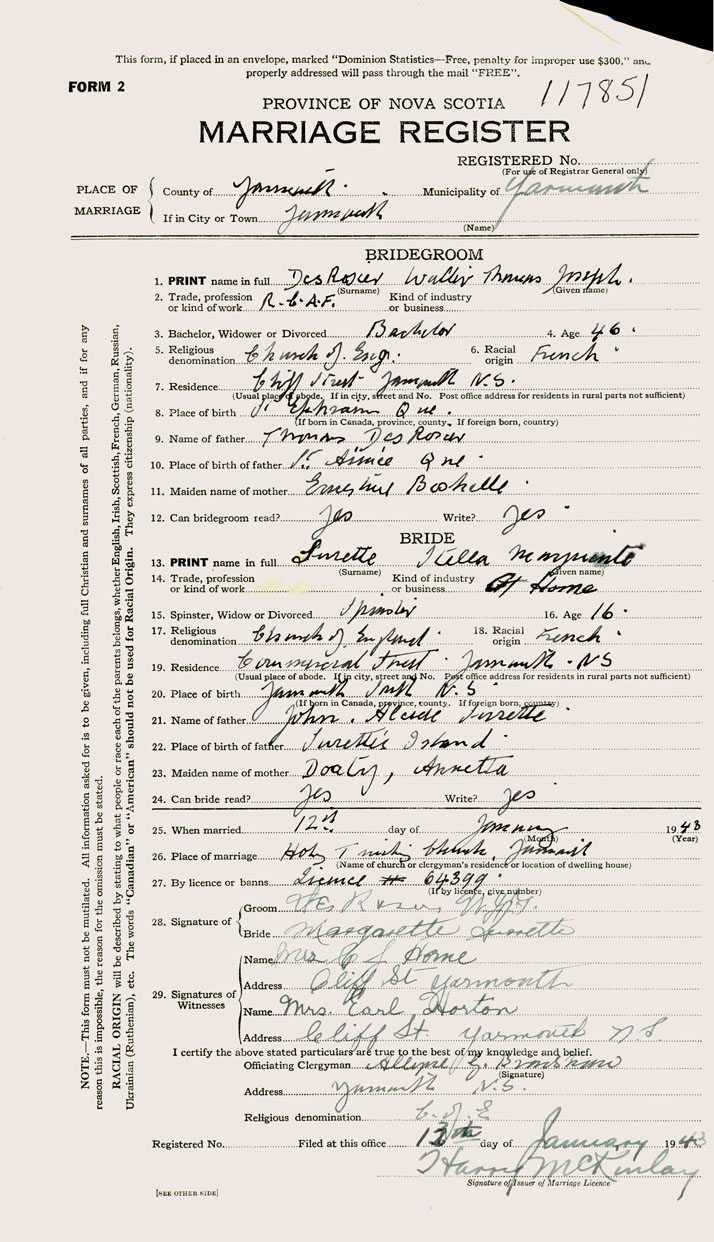 This form, if placed in an envelope, marked "Dominion Statistics—Free, penalty for improper use $300," and
properly addressed will pass through the mail "FREE".
FORM 2
117851
PROVINCE OF NOVA SCOTIA
MARRIAGE REGISTER
REGISTERED No.
(For use of Registrar General only)
PLACE OF MARRIAGE
County of Yarmouth Municipality of Yarmouth
If in City or Town Yarmouth
(Name)
BRIDEGROOM
1. PRINT name in full DesRosier Walter Thomas Joseph.
(Surname) (Given name)
2. Trade, profession or kind of work R.C.A.F. Kind of industry or business
3. Bachelor, Widower or Divorced Bachelor 4. Age 46
5. Religious denomination Church of Eng. 6. Racial origin French
7. Residence Cliff Street Yarmouth N.S.
(Usual place of abode. If in city, street and No. Post office address for residents in rural parts not sufficient)
8. Place of birth St Ephraim Que.
(If born in Canada, province, county. If foreign born, country)
9. Name of father Thomas DesRosier
10. Place of birth of father St. Aimée Que
11. Maiden name of mother Ernestine
12. Can bridegroom read? Yes Write? Yes
BRIDE
13. PRINT name in full Surette Stella
(Surname) (Given name)
14. Trade, profession or kind of work Kind of industry or business At Home
15. Spinster, Widow or Divorced Spinster 16. Age 16
17. Religious denomination Church of England 18. Racial origin French
19. Residence Commercial Street Yarmouth - NS
(Usual place of abode. If in city, street and No. Post office address for residents in rural parts not sufficient)
20. Place of birth Yarmouth South N.S
(If born in Canada, province, county. If foreign born, country)
21. Name of father John Alcide Surette
22. Place of birth of father Surette's Island
23. Maiden name of mother Doaty, Annetta
24. Can bride read? Yes Write? Yes
25. When married 12th day of January 1943
(Month) (Year)
26. Place of marriage Holy Trinity Church, Yarmouth
(Name of church or clergyman's residence or location of dwelling house)
27. By licence or banns Licence # 64399
(If by licence, give number)
28. Signature of
Groom Des Rosier W.J.T.
Bride Margarette Surette
29. Signatures of Witnesses
Name Mrs C L Horne
Address Cliff St Yarmouth
Name Mrs. Earl Horton
Address Cliff St. Yarmouth N.S.
I certify the above stated particulars are true to the best of my knowledge and belief.
Officiating Clergyman G. Bradshaw
(Signature)
Address Yarmouth N.S.
Religious denomination C. of E
Registered No. Filed at this office 13th day of January 1943
Harry McKinlay
Signature of Issuer of Marriage Licence
[SEE OTHER SIDE]
NOTE.—This form must not be mutilated. All information asked for is to be given, including full Christian and surnames of all parties, and if for any
reason this is impossible, the reason for the omission must be stated.
RACIAL ORIGIN will be described by stating to what people or race each of the parents belongs, whether English, Irish, Scottish, French, German, Russian,
Ukrainian (Ruthenian), etc. The words "Canadian" or "American" should not be used for Racial Origin. They express citizenship (nationality).